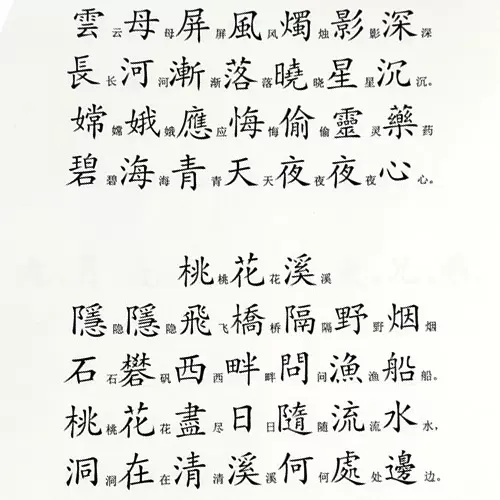 雲云母母屏屏風风燭烛影影深深
長长河河漸渐落落曉晓星星沉沉。
嫦嫦娥娥應应悔悔偷偷靈灵藥药
碧碧海海青青天天夜夜夜夜心心。
桃桃花花溪溪
隱隐隱隐飛飞橋桥隔隔野野烟烟
石石礬矾西西畔畔問问漁渔船船。
桃桃花花盡尽日日隨随流流水水，
洞洞在在清清溪溪何何處处邊边。